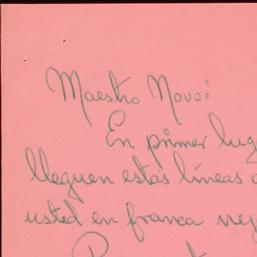 Maestro Novo:
En primer lug
lleguen estas líneas a
usted en franca mej